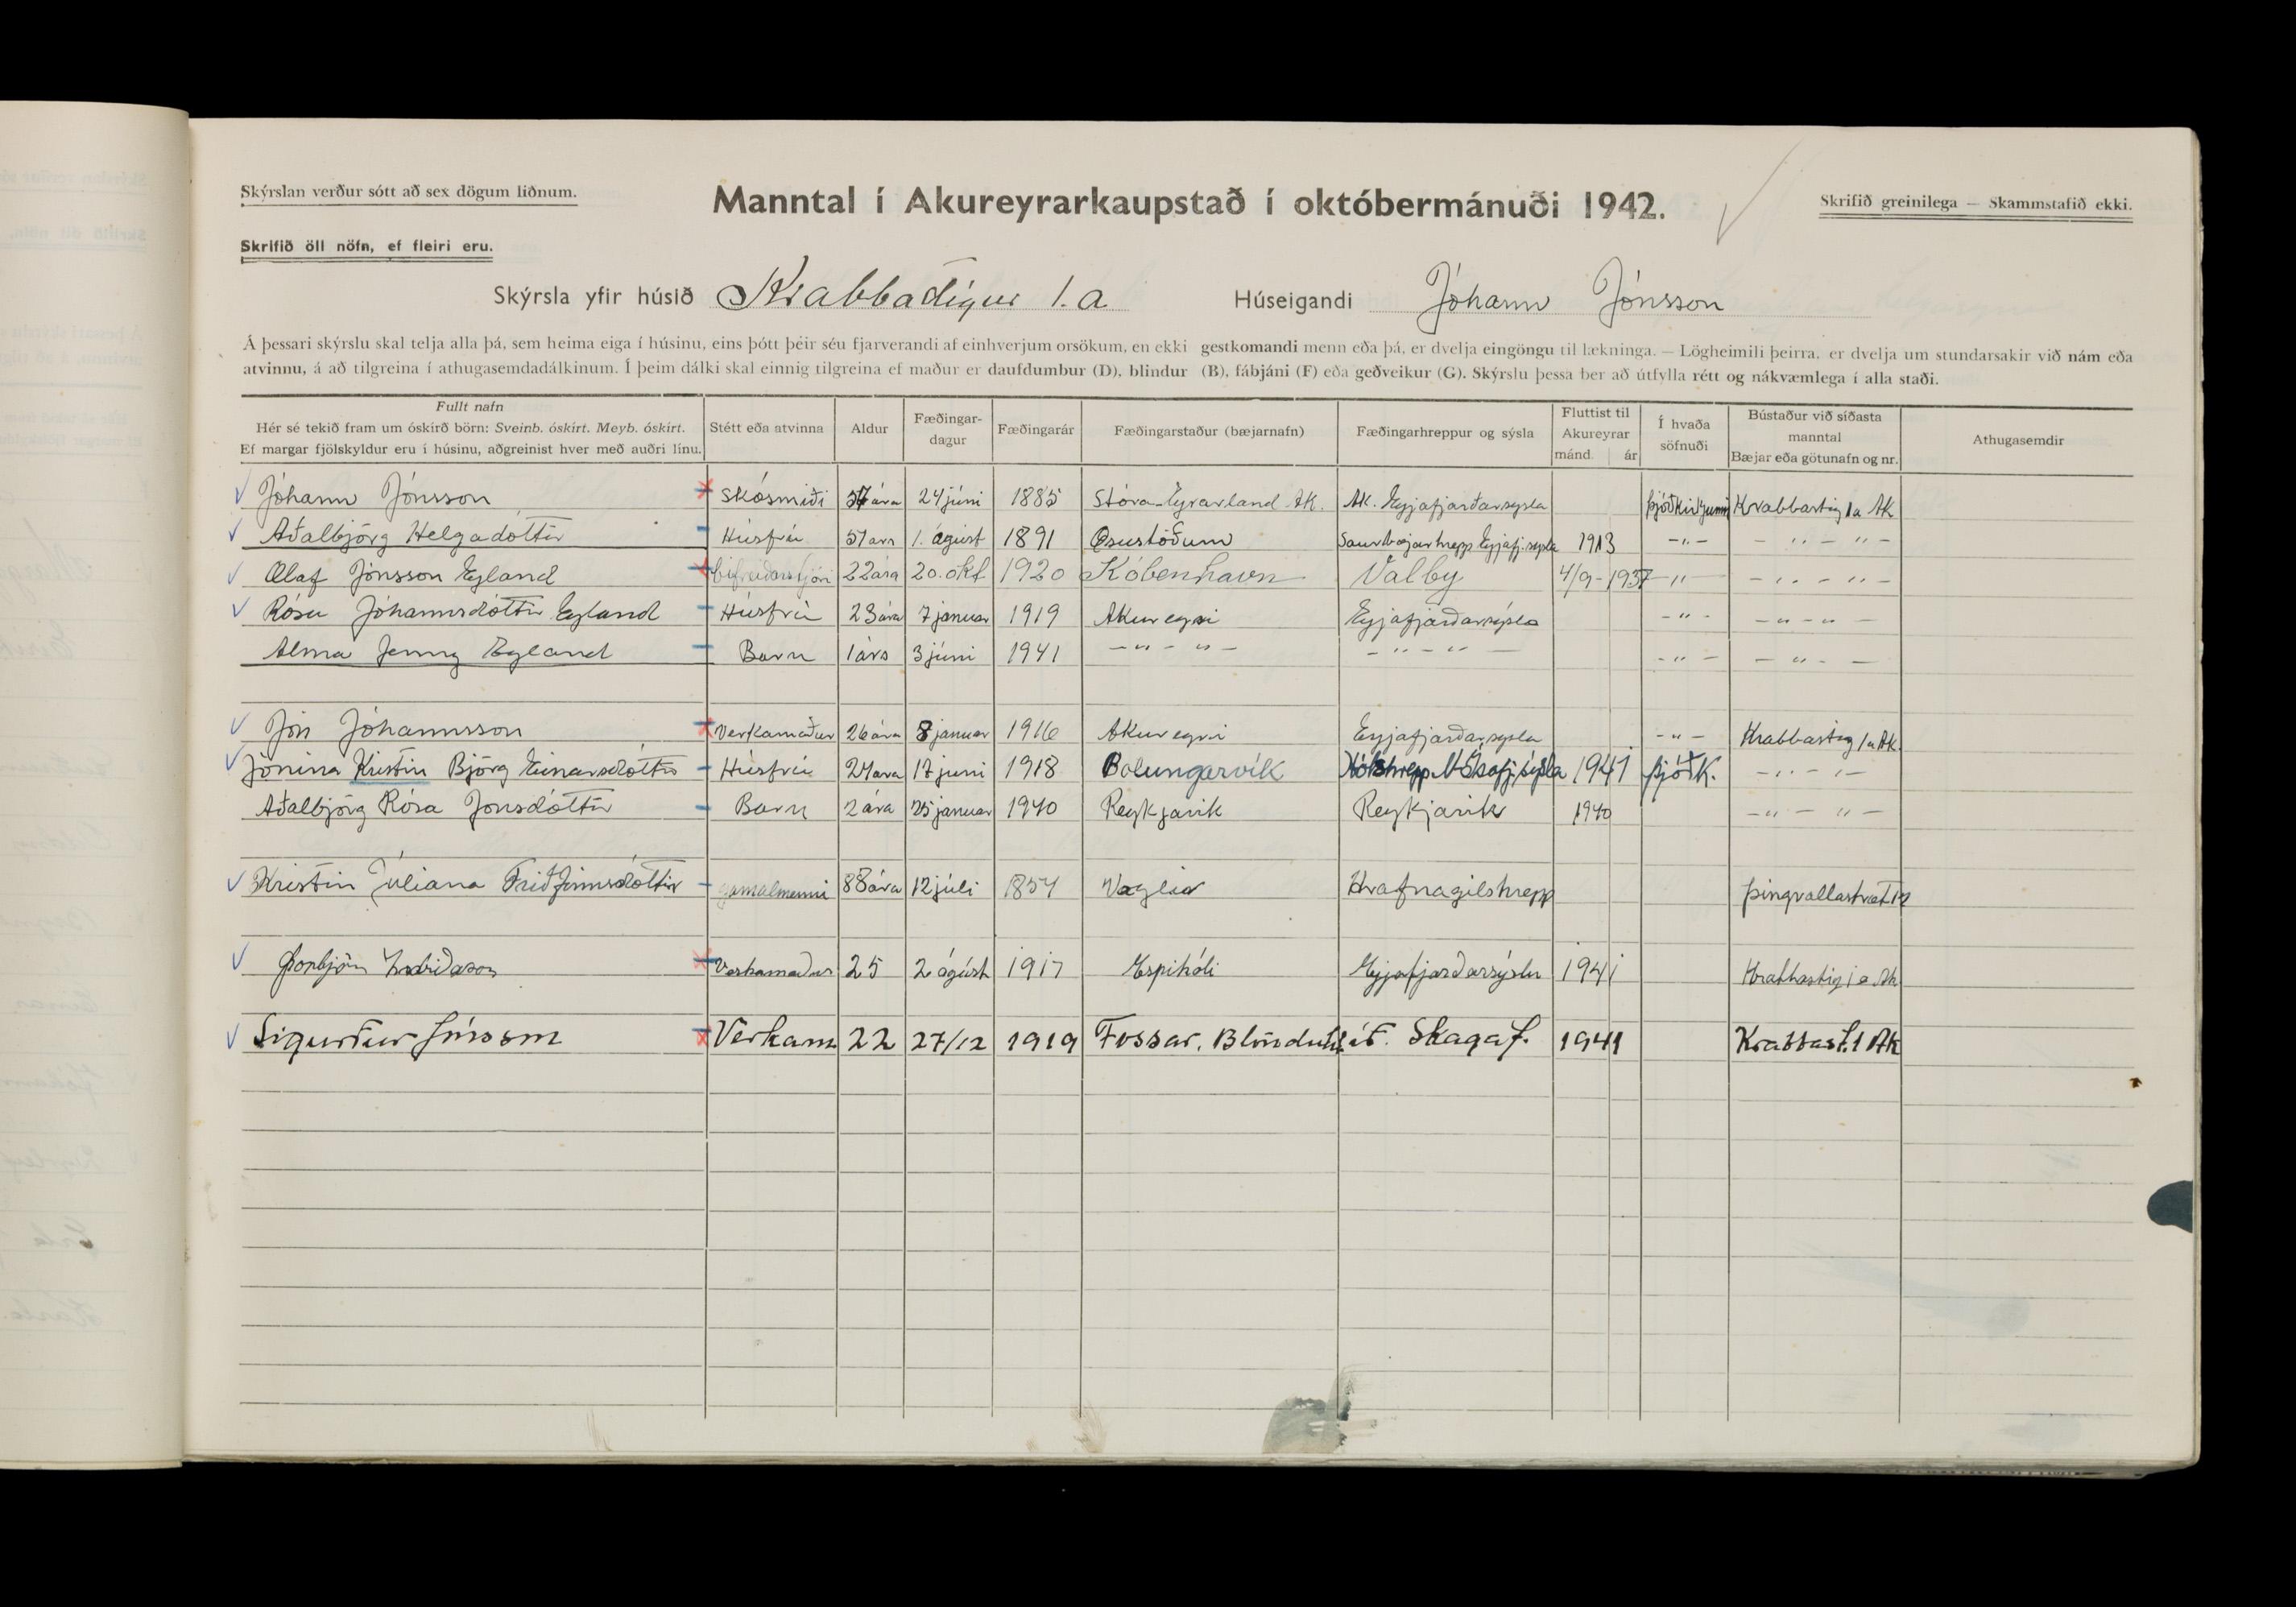 Skýrslan verður sótt að sex dögum liðnum.
Manntal í Akureyrarkaupstað í októbermánuði 1942.
Skrifið greinilega — Skammstafið ekki.
Skrifið öll nöfn, ef fleiri eru.
Skýrsla yfir húsið Krabbastígur 1.a Húseigandi Jóhann Jónsson
Á þessari skýrslu skal telja alla þá, sem heima eiga í húsinu, eins þótt þeir séu fjarverandi af einhverjum orsökum, en ekki gestkomandi menn eða þá, er dvelja eingöngu til lækninga. — Lögheimili þeirra, er dvelja um stundarsakir við nám eða
atvinnu, á að tilgreina í athugasemdadálkinum. Í þeim dálki skal einnig tilgreina ef maður er daufdumbur (D), blindur (B), fábjáni (F) eða geðveikur (G). Skýrslu þessa ber að útfylla rétt og nákvæmlega í alla staði.
Fullt nafn
Hér sé tekið fram um óskírð börn: Sveinb. óskírt. Meyb. óskírt.
Ef margar fjölskyldur eru í húsinu, aðgreinist hver með auðri línu.
Stétt eða atvinna
Aldur
Fæðingar-
dagur
Fæðingarár
Fæðingarstaður (bæjarnafn)
Fæðingarhreppur og sýsla
Fluttist til
Akureyrar
mánd. ár
Í hvaða
söfnuði
Bústaður við síðasta
manntal
Bæjar eða götunafn og nr.
Athugasemdir
Jóhann Jónsson Skósmiði 57 ára 24 júni 1885 Stóra-Eyrarland Ak. Ak. Eyjafjarðarsysla Þjóðkirkjunni Krabbastig 1a Ak
Aðalbjörg Helgadóttir Húsfrú 51 ars 1. ágúst 1891 Æsustöðum Saurbæjarhrepp Eyjafj.sysla 1913 -"- - " - " -
Olaf Jónsson Eyland bifreiðarstjóri 22 ára 20. okt 1920 Köbenhavn Valby 4/9-1937 -"- - " - " -
Rósa Jóhannsdóttir Eyland Húsfrú 23 ára 7 januar 1919 Akureyri Eyjafjarðarsýsla - " - - " - " -
Alma Jenny Eyland Barn 1 árs 3 júni 1941 - " - " - - " - " - - " - - " - -
Jón Jóhannsson Verkamaður 26 ára 8 januar 1916 Akureyri Eyjafjarðarsysla - " - Krabbastig 1a Ak.
Jónína Kristín Björg Einarsdóttir Húsfrú 24 ara 17 juni 1918 Bolungarvík Hólshrepp N-Ísafj.sýsla 1941 Þjóðk. - " - " -
Aðalbjörg Rósa Jónsdóttir Barn 2 ára 25 januar 1940 Reykjavik Reykjavik 1940 - " - " -
Kristín Júliana Friðfinnsdóttir gamalmenni 88 ára 12 júli 1854 Vaglir Hrafnagilshrepp Þingvallastræt 12
Þorbjörn Indriðason Verkamaður 25 2 ágúst 1917 Espihóli Eyjafjarðarsýslu 1941 Krabbastig 1 a Ak
Sigurður Jónsson Verkam 22 27/12 1919 Fossar, Skagaf. 1941 Krabbast. 1 Ak